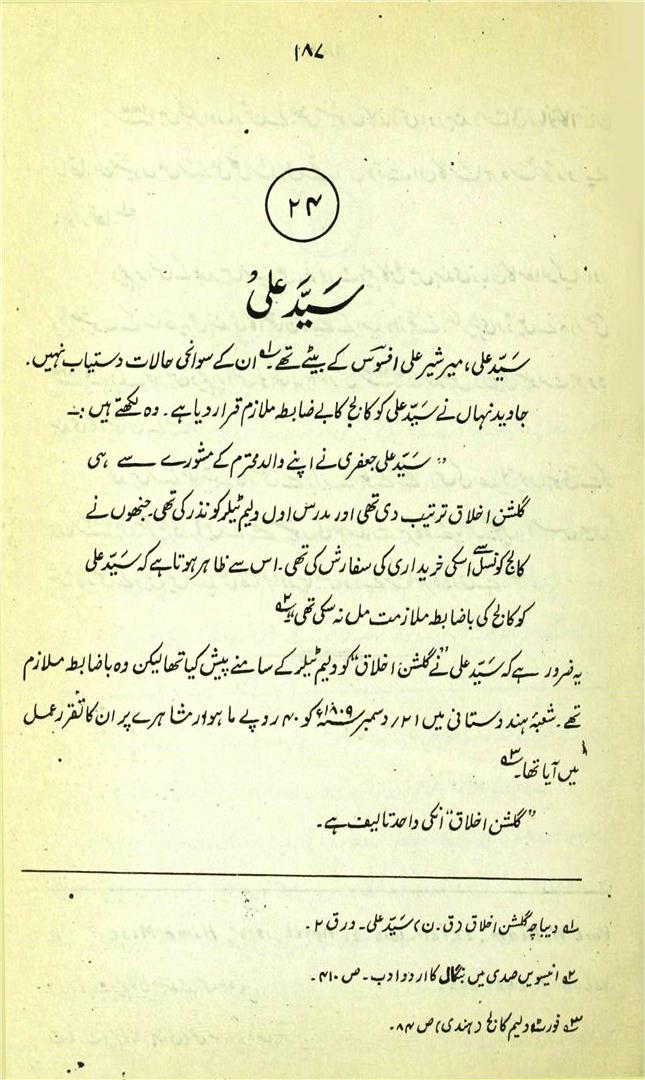 ۱۸۷
۲۴
سَیّد علی
سَیّد علی، میر شیر علی افسوس کے بیٹے تھے۔۱؎ ان کے سوانحی حالات دستیاب نہیں۔
جاوید نہاں نے سَیّد علی کو کالج کا بے ضابطہ ملازم قرار دیا ہے۔ وہ لکھتے ہیں :۔
”سَیّد علی جعفری نے اپنے والد محترم کے مشورے سے ہی
گلشن اخلاق ترتیب دی تھی اور مدرس اول ولیم ٹیلر کو نذر کی تھی۔ جنھوں نے
کالج کونسل سے اسکی خریداری کی سفارش کی تھی۔ اس سے ظاہر ہوتا ہے کہ سَیّد علی
کو کالج کی باضابطہ ملازمت مل نہ سکی تھی“۲؎
یہ ضرور ہے کہ سَیّد علی نے ”گلشن اخلاق“ کو ولیم ٹیلر کے سامنے پیش کیا تھا لیکن وہ باضابطہ ملازم
تھے۔ شعبۂ ہندستانی میں ۲۱؍ دسمبر ۱۸۰۹ء کو ۴۰ روپے ماہوار مشاہرے پر ان کا تقرر عمل
میں آیا تھا۔۳؎
”گلشن اخلاق“ انکی واحد تالیف ہے۔
۱؎ دیباچہ گلشن اخلاق (ق۔ن) سَیّد علی۔ ورق ۲۔
۲؎ انیسویں صدی میں بنگال کا اردو ادب۔ ص ۴۱۰۔
۳؎ فورٹ ولیم کالج (ہندی) ص ۸۴۔